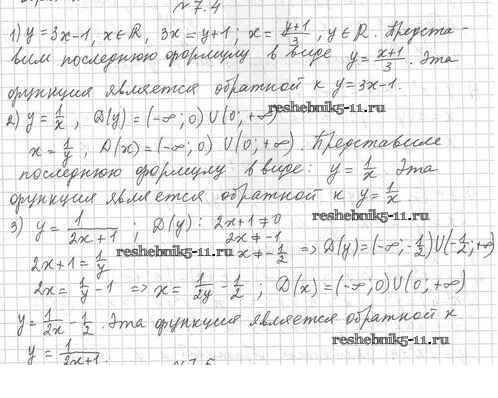 № 7.4
1) y = 3x-1, x∈R, 3x = y+1; x = \frac{y+1}{3}, y∈R. Предста-
вим последнюю формулу в виде y = \frac{x+1}{3}. Эта
функция является обратной к y = 3x-1.
reshebnik5-11.ru
2) y = \frac{1}{x}, D(y) = (-∞; 0) U (0; +∞)
x = \frac{1}{y}; D(x) = (-∞; 0) U (0; +∞). Представим
последнюю формулу в виде: y = \frac{1}{x}. Эта
функция является обратной к y = \frac{1}{x}.
reshebnik5-11.ru
3) y = \frac{1}{2x+1}; D(y): 2x+1≠0
2x≠-1
x≠-\frac{1}{2} => D(y) = (-∞; -\frac{1}{2}) U (-\frac{1}{2}; +∞)
reshebnik5-11.ru
2x+1 = \frac{1}{y}
2x = \frac{1}{y} - 1 => x = \frac{1}{2y} - \frac{1}{2}; D(x) = (-∞; 0) U (0; +∞)
y = \frac{1}{2x} - \frac{1}{2}. Эта функция является обратной к
y = \frac{1}{2x+1}.
reshebnik5-11.ru